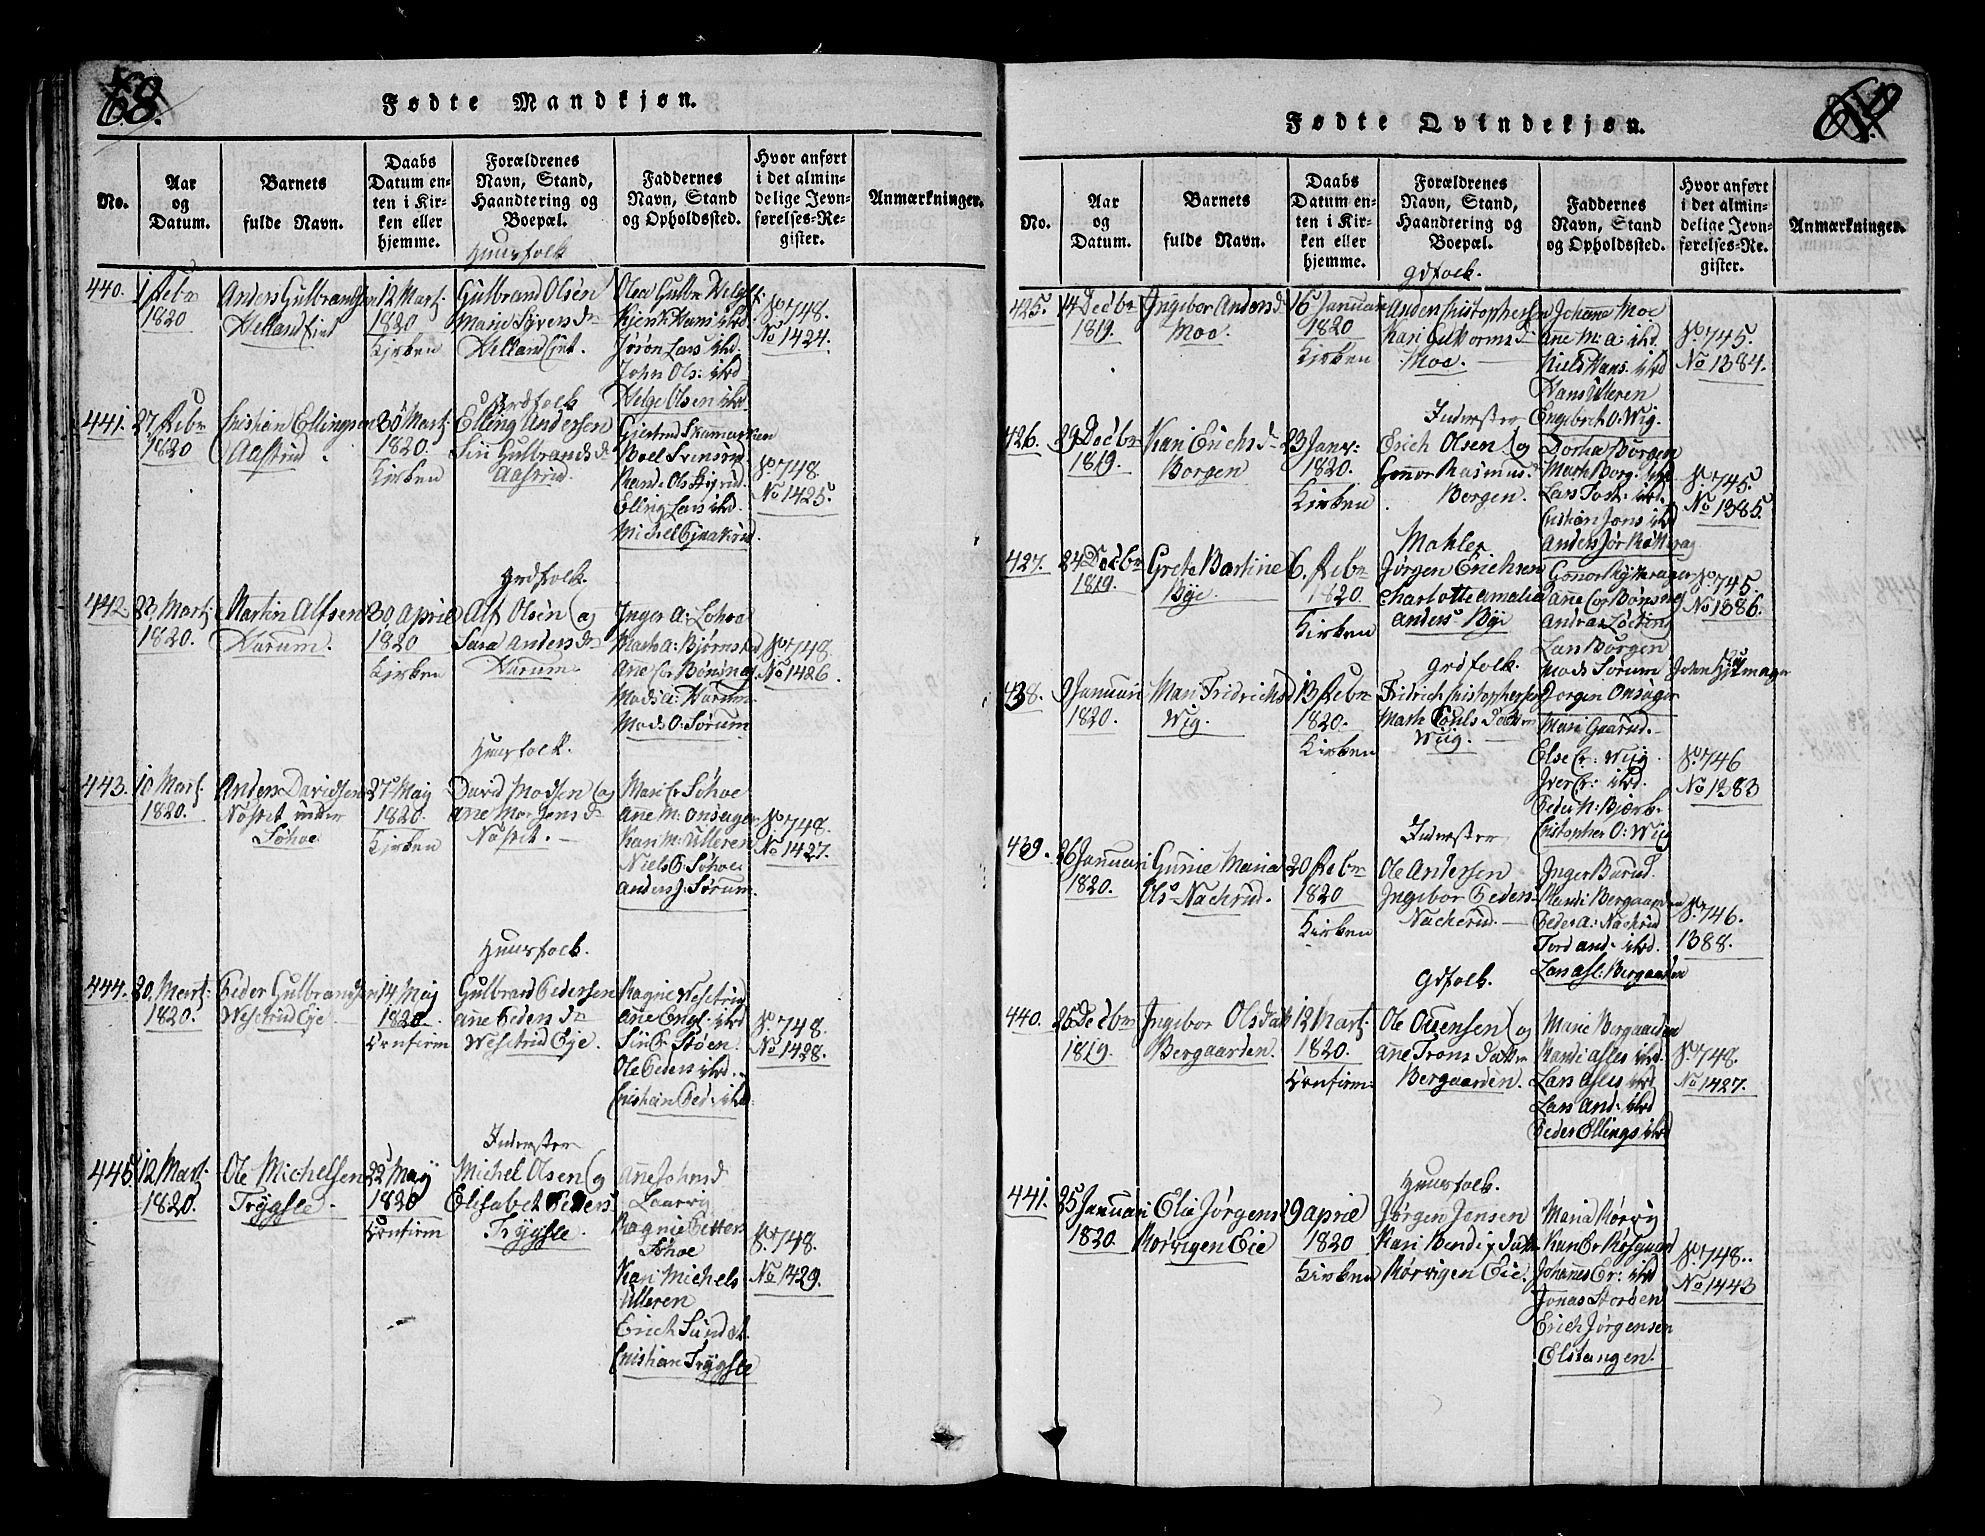 68.
Fødte Mandkjøn.
No.
Aar
og
Datum.
Barnets
fulde Navn.
Daabs
Datum en-
ten i Kir-
ken eller
hjemme.
Forældrenes
Navn, Stand,
Haandtering og
Boepæl.
Faddernes
Navn, Stand
og Opholdssted.
Hvor anført
i det almin-
delige Jevn-
førelses-Re-
gister.
Anmærkninger.
Huusfolk
440.
1 Febr
1820
Anders Gulbrandsen
12 Mart.
1820
Kirken
Gulbrand Olsen
Marie Syvers dr
John Ols: ibd
Helge Olsen ibd.
748.
No 1424.
441.
27 Febr
1820
Christian Ellingsen
Aastrud.
30 Mart.
1820.
Kirken
Grdfolk
Elling Andersen
Siri Gulbrands dr
Aastrud.
Elling Lars ibd.
748
No 1425.
442
23 Mart.
1820.
Martin Alfsen
Harum.
30 April
1820
Kirken
Grdfolk.
Alf Olsen og
Sara Anders dr
Harum
Inger A: Lohoe
Marth A: Bjørnstad
Mads A: Harum.
Mads O: Sørum
748.
No 1426
443.
10 Mart.
1820.
Anders Davidsen
Nøstet under
Søhoe
27 Maj
1820.
Kirken
Huusfolk.
David Madsen og
Anne Morgens dr
Nøstet.
Mari Er Søhoe
Anne M: Onsager
Kari M: Ulleren
Niels E: Søhoe
Anders J: Sørum.
748.
No 1427.
444.
30. Mart:
1820.
Peder Gulbrandsen
Westrud Eje
14 Maj
1820.
Confirm
Huusfolk.
Gulbrand Pedersen
Anne Peders dr
Westrud Eje.
Ragne Westrud
Siri Er Støen.
Ole Peders ibd.
Christian Ped: ibd:
748.
No 1428.
445.
12 Mart.
1820.
Ole Michelsen
Trygsle.
22 Maij
1820
Confirm
Inderster
Michel Olsen og
Elisabet Peders
Trygsle.
Anne Johnsd
Laarvig
Ragnie Petters
Søhoe
Kari Michels
Ulleren
Erich Sundet.
Christian Trygsle
748.
No 1429.
Fødte Qvindekjøn.
No.
Aar
og
Datum.
Barnets
fulde Navn.
Daabs
Datum en-
ten i Kir-
ken eller
hjemme.
Forældrenes
Navn, Stand,
Haandtering og
Boepæl.
Faddernes
Navn, Stand
og Opholdssted.
Hvor anført
i det almin-
delige Jevn-
førelses-Re-
gister.
Anmærkninger.
Gdfolk.
425.
14 Decbr
1819.
Ingebor Andersd
Moe.
16 Januari
1820
Kirken
Anders Christophersen
Kari Guttorms d
Moe.
Johanne Moe
Anne M: A: ibd.
Niels Hans. ibd
Hans Ulleren
Engebret O: Wig.
745.
No 1384.
426.
29 Decbr
1819.
Kari Erichs dr
Borgen
23 Janr:
1820.
Kirken
Inderster
Erich Olsen og
Gonnor Rasmus:
Borgen.
Dorthe Borgen
Marth Borg. ibd
Lars Tost: ibd.
Christian Jons ibd
745.
No 1385.
427.
24 Decbr
1819.
Grete Bartine
Bye
6. Febr
1820.
Kirken
Mahler
Jørgen Erichsen
Charlotte Amalia
Anders Bye
Lars Borgen
Mads Sørum
745
No 1386.
438.
9 Januari
1820.
Mari Fridrichsd
Wig.
13 Febr
1820.
Kirken
Grdfolk.
Fridrich Christophersen
Marthe Pouls Datter
Wiig.
Jørgen Onsager
Mari Gaarud.
Else Er. Wig.
Iver Er: ibd.
Peder N: Bierk.
Christopher O: Wig
746
No 1383
439.
26 Januari
1820.
Gunie Maria
Ols: Nachrud.
20 Febr
1820
Kirken
Inderster
Ole Andersen
Ingebor Peders
Nacherud.
Inger Burud.
Randi Bergaarden
Peder A: Nachrud
Tord And: ibd.
Lars Asl: Bergaarden
746.
1388.
440.
25 Decbr
1819.
Ingebor Olsdatt
Bergaarden.
12 Mart.
1820.
Confirm:
Gdfolk.
Ole Evensen og
Anne Trons Datter
Bergaarden.
Marie Bergaarden
Randi Asles ibd.
Lars Asles ibd
Lars And: ibd
Peder Ellings ibd
748.
No 1427.
441.
25 Januari
1820.
Elie Jørgens
Rørvigen Eie
9 April
1820
Kirken
Huusfolk.
Jørgen Jensen
Kari Bendix Datt
Rørvigen Eie.
Maria Rørvig
Johannes Er: ibd
Jonas Storøen
Erich Jørgensen
Elstangen.
748..
No 1443